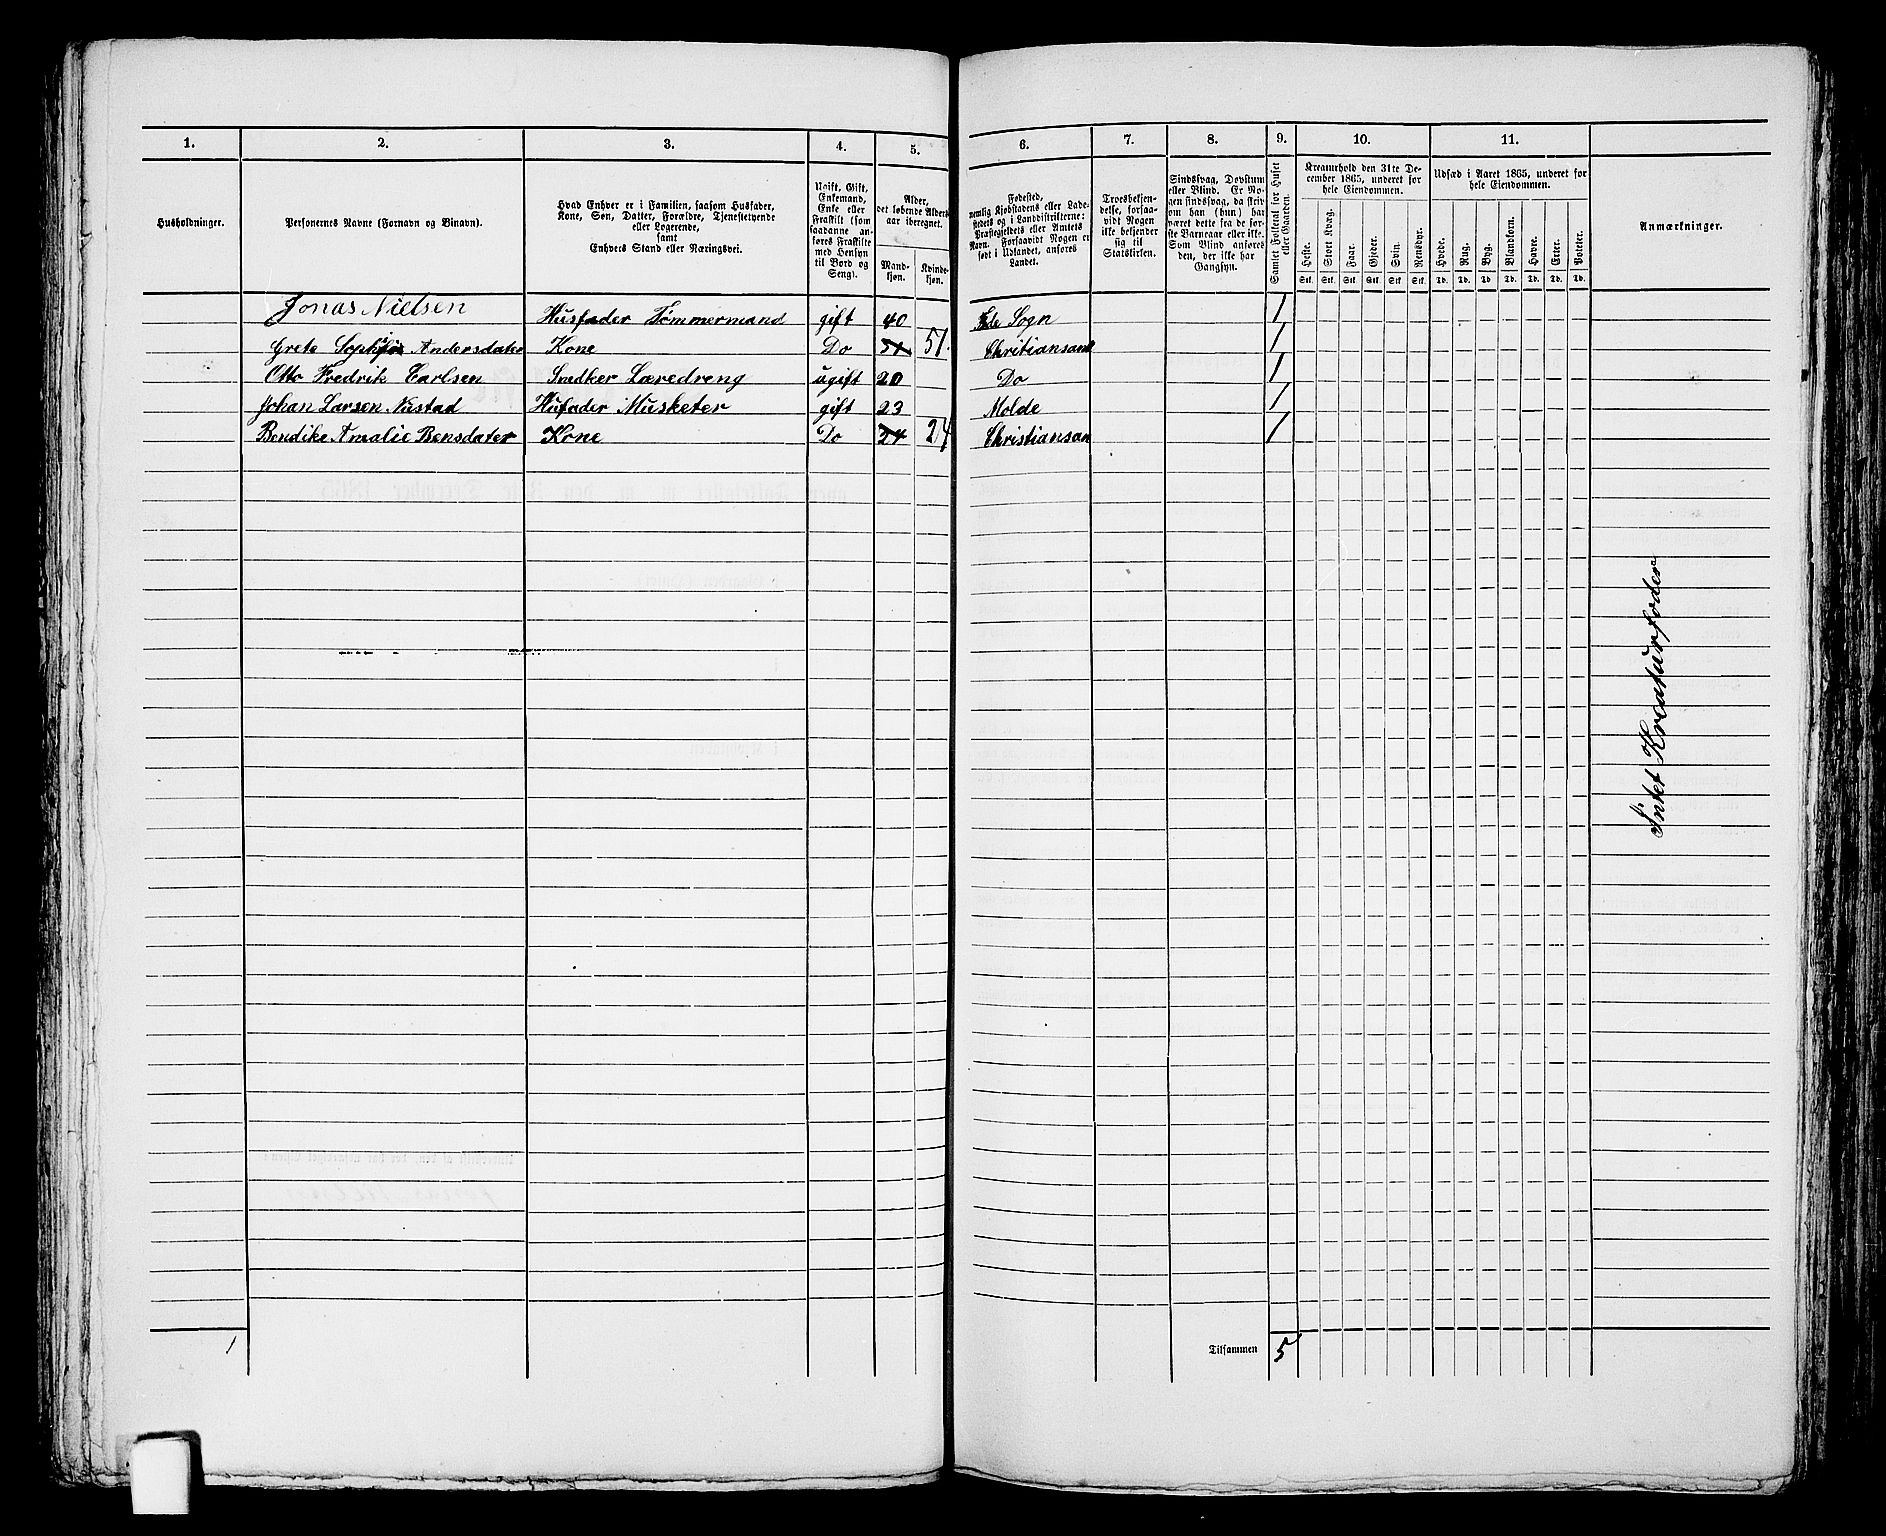 1.
2.
3.
4.
5.
6.
7.
8.
9.
10.
11.
Husholdninger.
Personernes Navne (Fornavn og Binavn).
Hvad Enhver er i Familien, saasom Husfader,
Kone, Søn, Datter, Forældre, Tjenestetyende
eller Logerende,
samt
Enhvers Stand eller Næringsvei.
Ugift, Gift,
Enkemand,
Enke eller
Fraskilt (som
saadanne an-
føres Fraskilte
med Hensyn
til Bord og
Seng).
Alder,
det løbende Alders-
aar iberegnet.
Mand-
kjøn.
Kvinde-
kjøn.
Fødested,
nemlig Kjøbstadens eller Lade-
stedets og i Landdistrikterne:
Præstegjeldets eller Amtets
Navn. Forsaavidt Nogen er
født i Udlandet, anføres
Landet.
Troesbekjen-
delse, forsaa-
vidt Nogen
ikke bekjender
sig til
Statskirken.
Sindssvag, Døvstum
eller Blind. Er No-
gen sindssvag, da skriv
om han (hun) har
været dette fra de før-
ste Barneaar eller ikke.
Som Blind anføres
den, der ikke har
Gangsyn.
Samlet Folketal for Huset
eller Gaarden.
Kreaturhold den 31te De-
cember 1865, underet for
hele Eiendommen.
Heste.
Stort Kvæg.
Faar.
Gjeder.
Svin.
Rensdyr.
Stk.
Stk.
Stk.
Stk.
Stk.
Stk.
Udsæd i Aaret 1865, underet for
hele Eiendommen.
Hvede.
Rug.
Byg.
Blandkorn.
Havre.
Erter.
Poteter.
Td.
Td.
Td.
Td.
Td.
Td.
Td.
Anmærkninger.
Jonas Nielsen Husfader Tømmermand gift 40 Sogn 1
Grete Andersdater Kone Do 51 51 Christiansand 1
Otto Fredrik Carlsen Snedker Læredreng ugift 20 Do 1
Johan Larsen Nustad Husfader Musketer gift 23 Molde 1
Bendike Amalie Bensdater Kone Do 24 24 Christiansan 1
Intet Kreaturfoder
1
Tilsammen 5